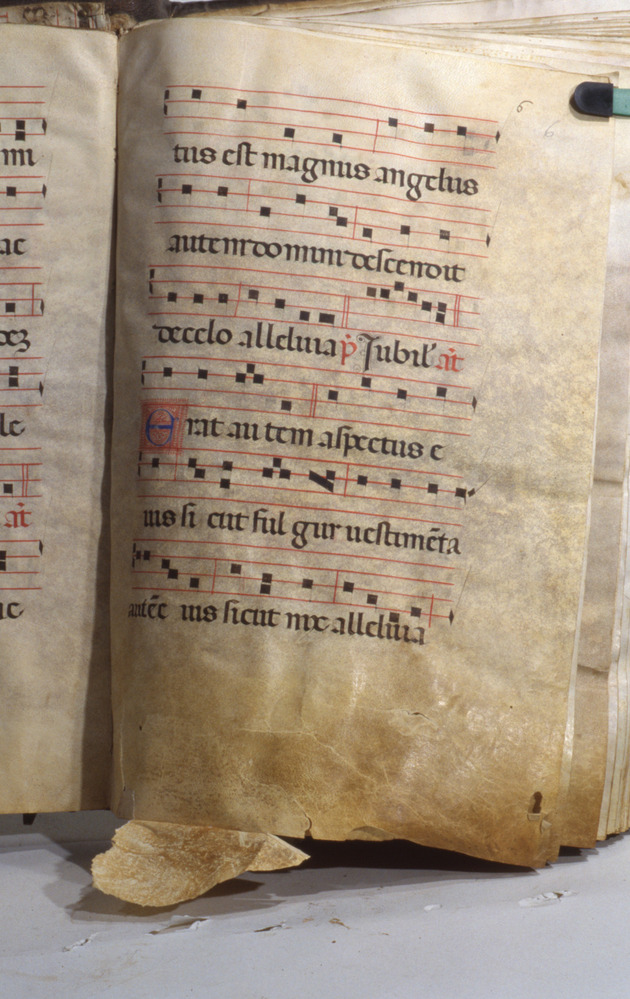 mi
ac
le
at
ac
6
tus est magnus angelus
autem domini descendit
de celo alleluia p̄ Jubil' añ
Erat autem aspectus e
ius si cut ful gur uestimēta
autē e ius sicut nix alleluia